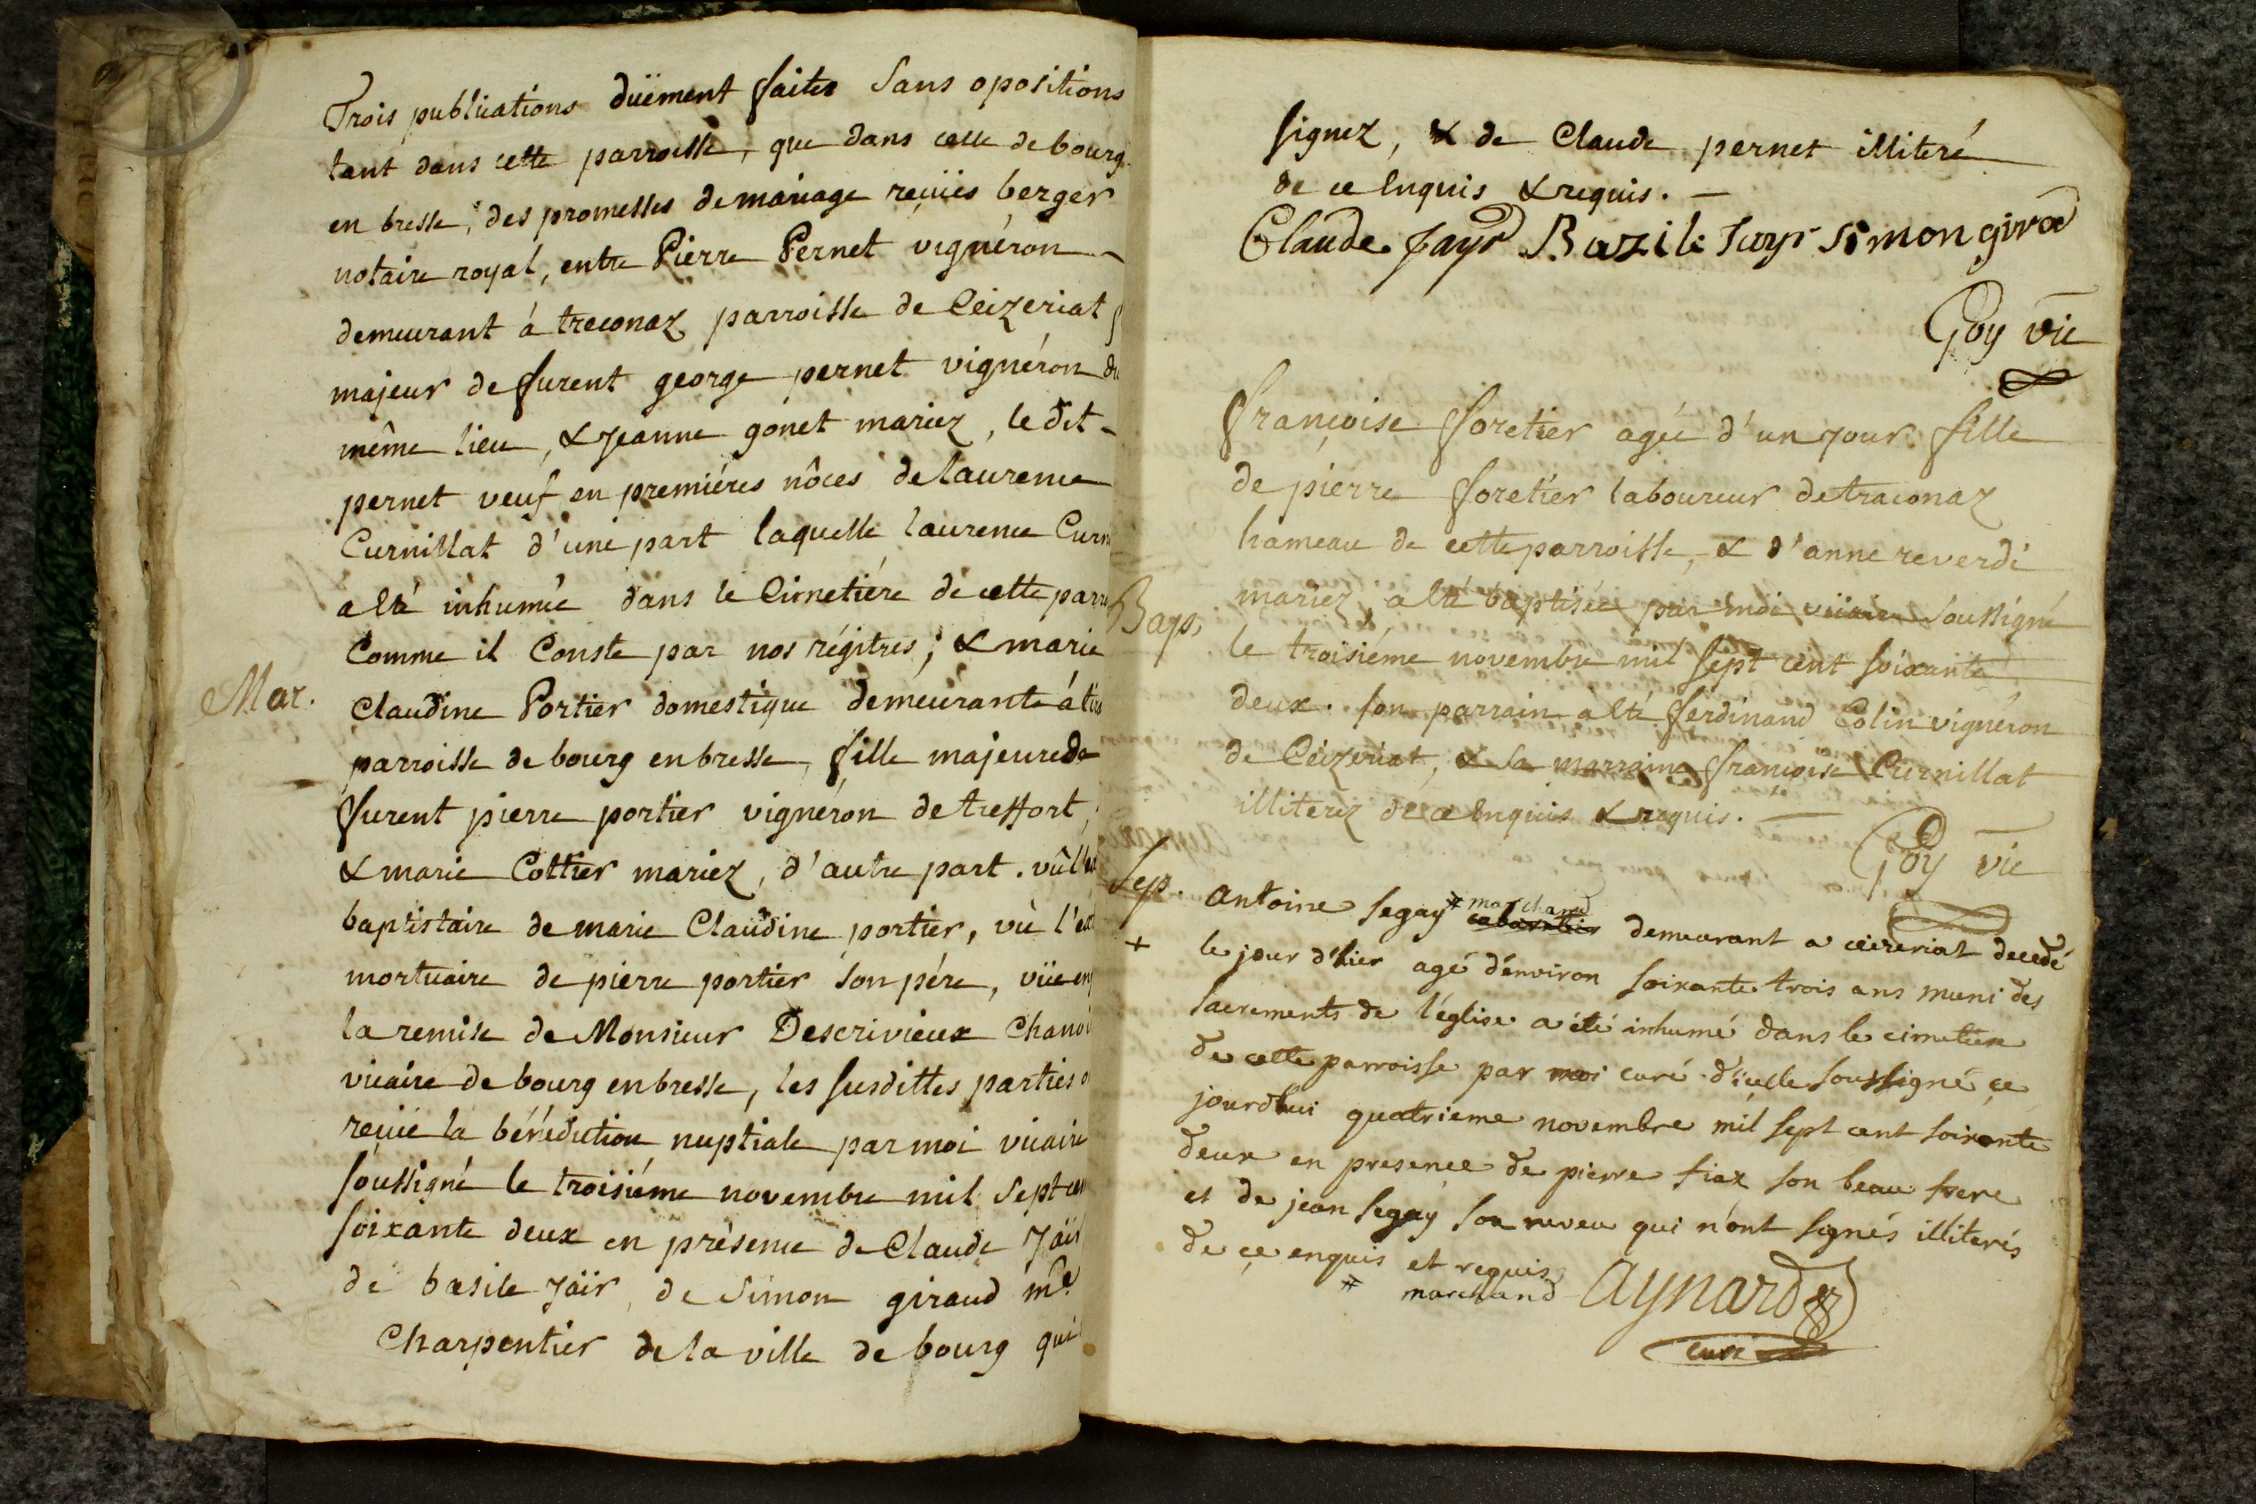 Trois publications düement faites sans opositions
tant dans cette parroisse, que dans celle de bourg
en bresse, des promesses de mariage reçües berger
notaire royal, entre Pierre Pernet vignéron
demeurant á treconaz parroisse de Ceizeriat
majeur de furent george pernet vignéron du
même lieu, & jeanne gonet mariez, le dit
pernet veuf en premiéres nôces de laurence
Curnillat d'une part laquelle laurence Curn
a été inhumée dans le Cimetiére de cette parro
Comme il Conste par nos régitres; & marie
Mar.
Claudine Portier domestique demeurante á
parroisse de bourg en bresse, fille majeure de
furent pierre portier vignéron de treffort,
& marie Cottier mariez, d'autre part. vû
baptistaire de marie Claudine portier, vû l'ext
mortuaire de pierre portier son pére, vüe
la remise de Monsieur Descrivieux Chanoi
vicaire de bourg en bresse, les susdittes parties
reçüe la bénédiction nuptiale par moi vicaire
soussigné le troisiéme novembre mil sept cen
soixante deux en présence de Claude jaïr
de basile jaïr, de Simon giraud me
Charpentier de la ville de bourg qui
signez, & de Claude pernet illiteré
de ce Enquis & requis.
Claude jayr Bazile jayr simon girod
Goy vic
françoise foretier agée d'un jour fille
de pierre foretier laboureur de traconaz
hameau de cette parroisse, & d'anne reverdi
Bap.
mariez, a été baptisée par moi vicaire soussigné
le troisiéme novembre mil sept cent soixante
deux. son parrain a été ferdinand Colin vignéron
de Ceizeriat, & sa marraine françoise Curnillat
illiterez de ce Enquis & requis.
Goy vic
Sep.
+
antoine segay # marchand cabaretier demeurant a ceizeriat decedé
le jour d'hier agé d'environ soixante trois ans muni des
sacrements de l'église a été inhumé dans le cimetiere
de cette parroisse par moi curé d'icelle soussigné ce
jourdhui quatrieme novembre mil sept cent soixante
deux en presence de pierre fiax son beau frere
et de jean segay son neveu qui n'ont signés illiterés
de ce enquis et requis
# marchand
aynard
curé